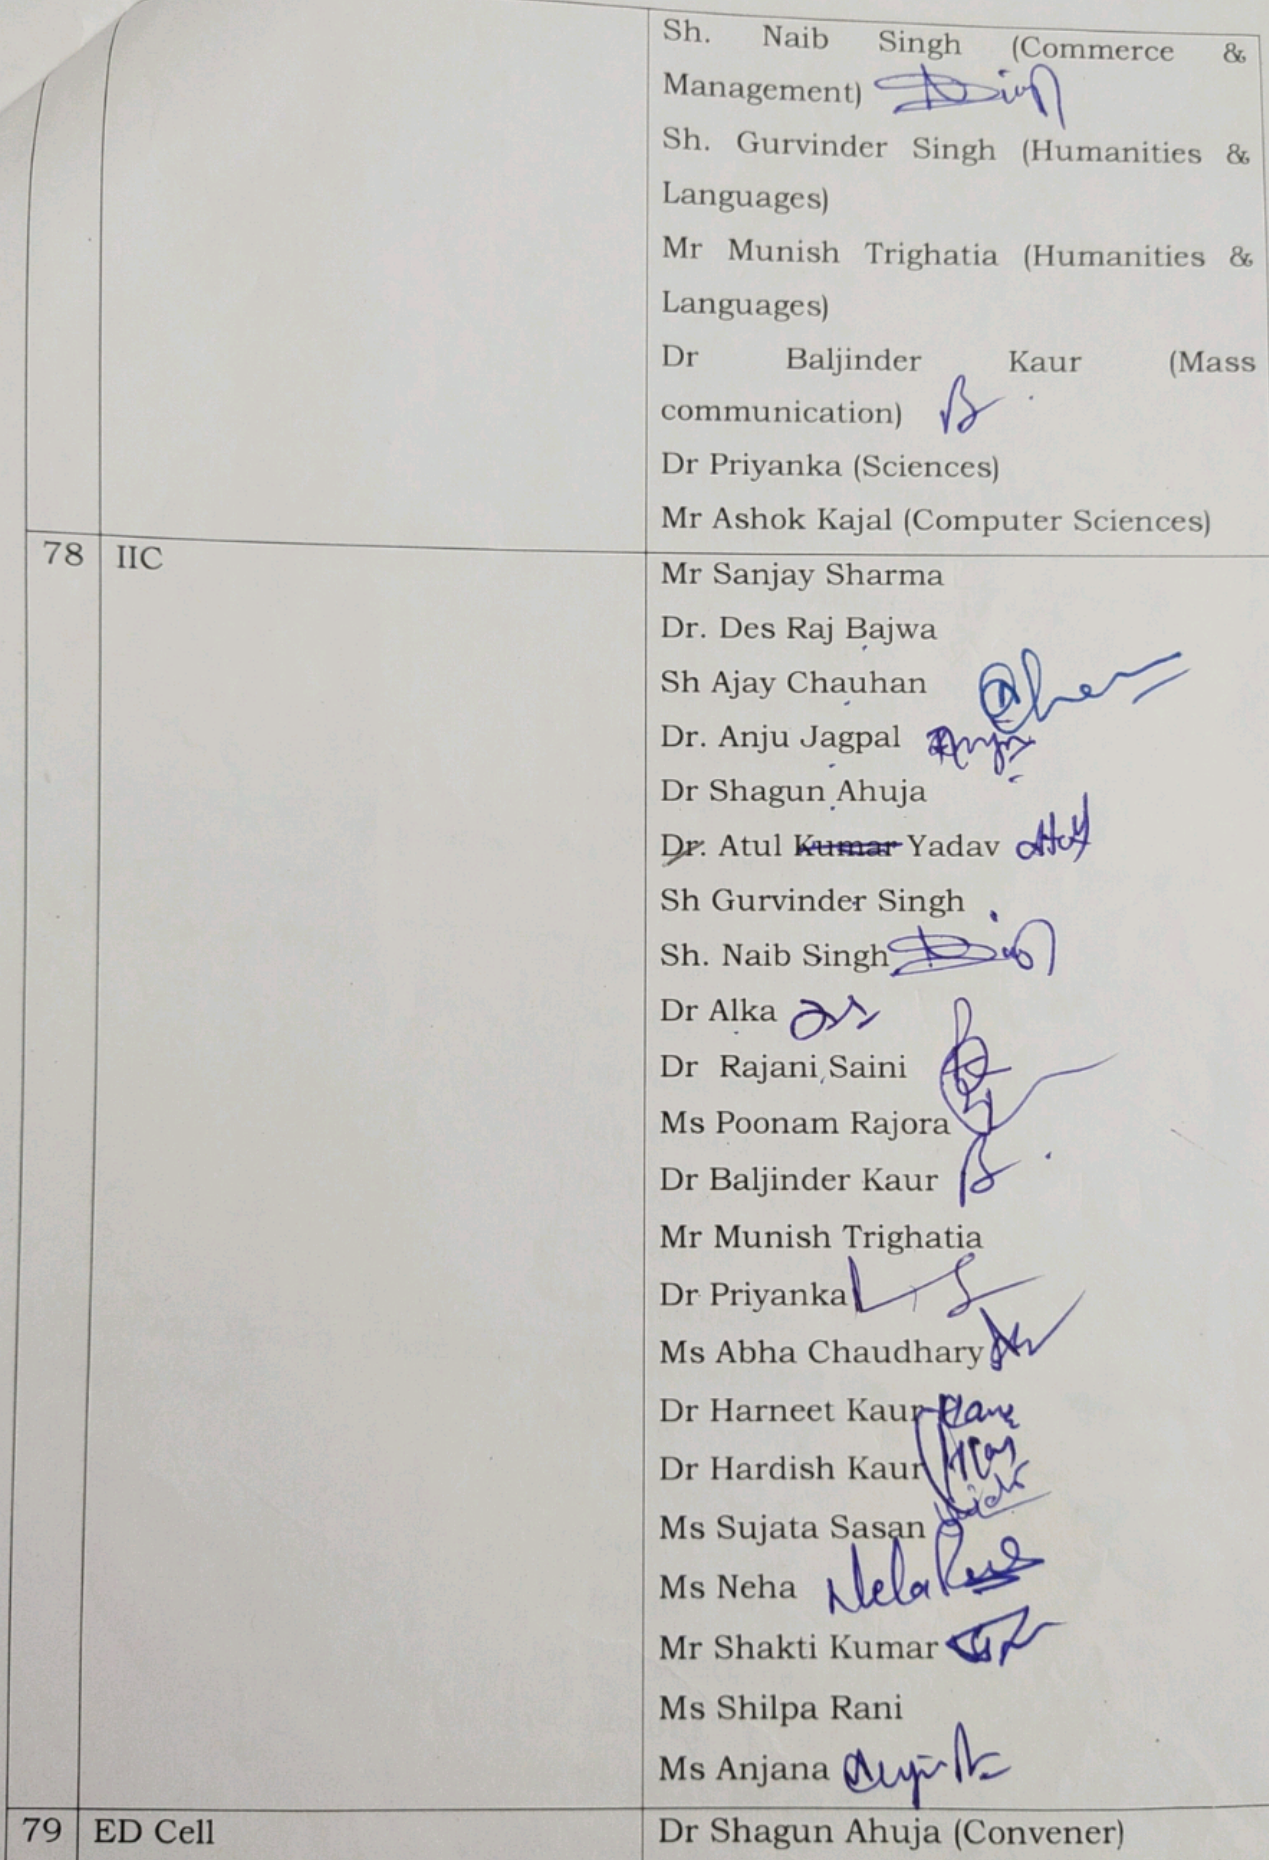 Sh. Naib Singh (Commerce &
Management)
Sh. Gurvinder Singh (Humanities &
Languages)
Mr Munish Trighatia (Humanities &
Languages)
Dr Baljinder Kaur (Mass
communication)
Dr Priyanka (Sciences)
Mr Ashok Kajal (Computer Sciences)
78 IIC Mr Sanjay Sharma
Dr. Des Raj Bajwa
Sh Ajay Chauhan
Dr. Anju Jagpal Anju
Dr Shagun Ahuja
Dr. Atul Kumar Yadav
Sh Gurvinder Singh
Sh. Naib Singh
Dr Alka
Dr Rajani Saini
Ms Poonam Rajora
Dr Baljinder Kaur
Mr Munish Trighatia
Dr Priyanka
Ms Abha Chaudhary
Dr Harneet Kaur
Dr Hardish Kaur
Ms Sujata Sasan
Ms Neha Neha
Mr Shakti Kumar
Ms Shilpa Rani
Ms Anjana
79 ED Cell Dr Shagun Ahuja (Convener)